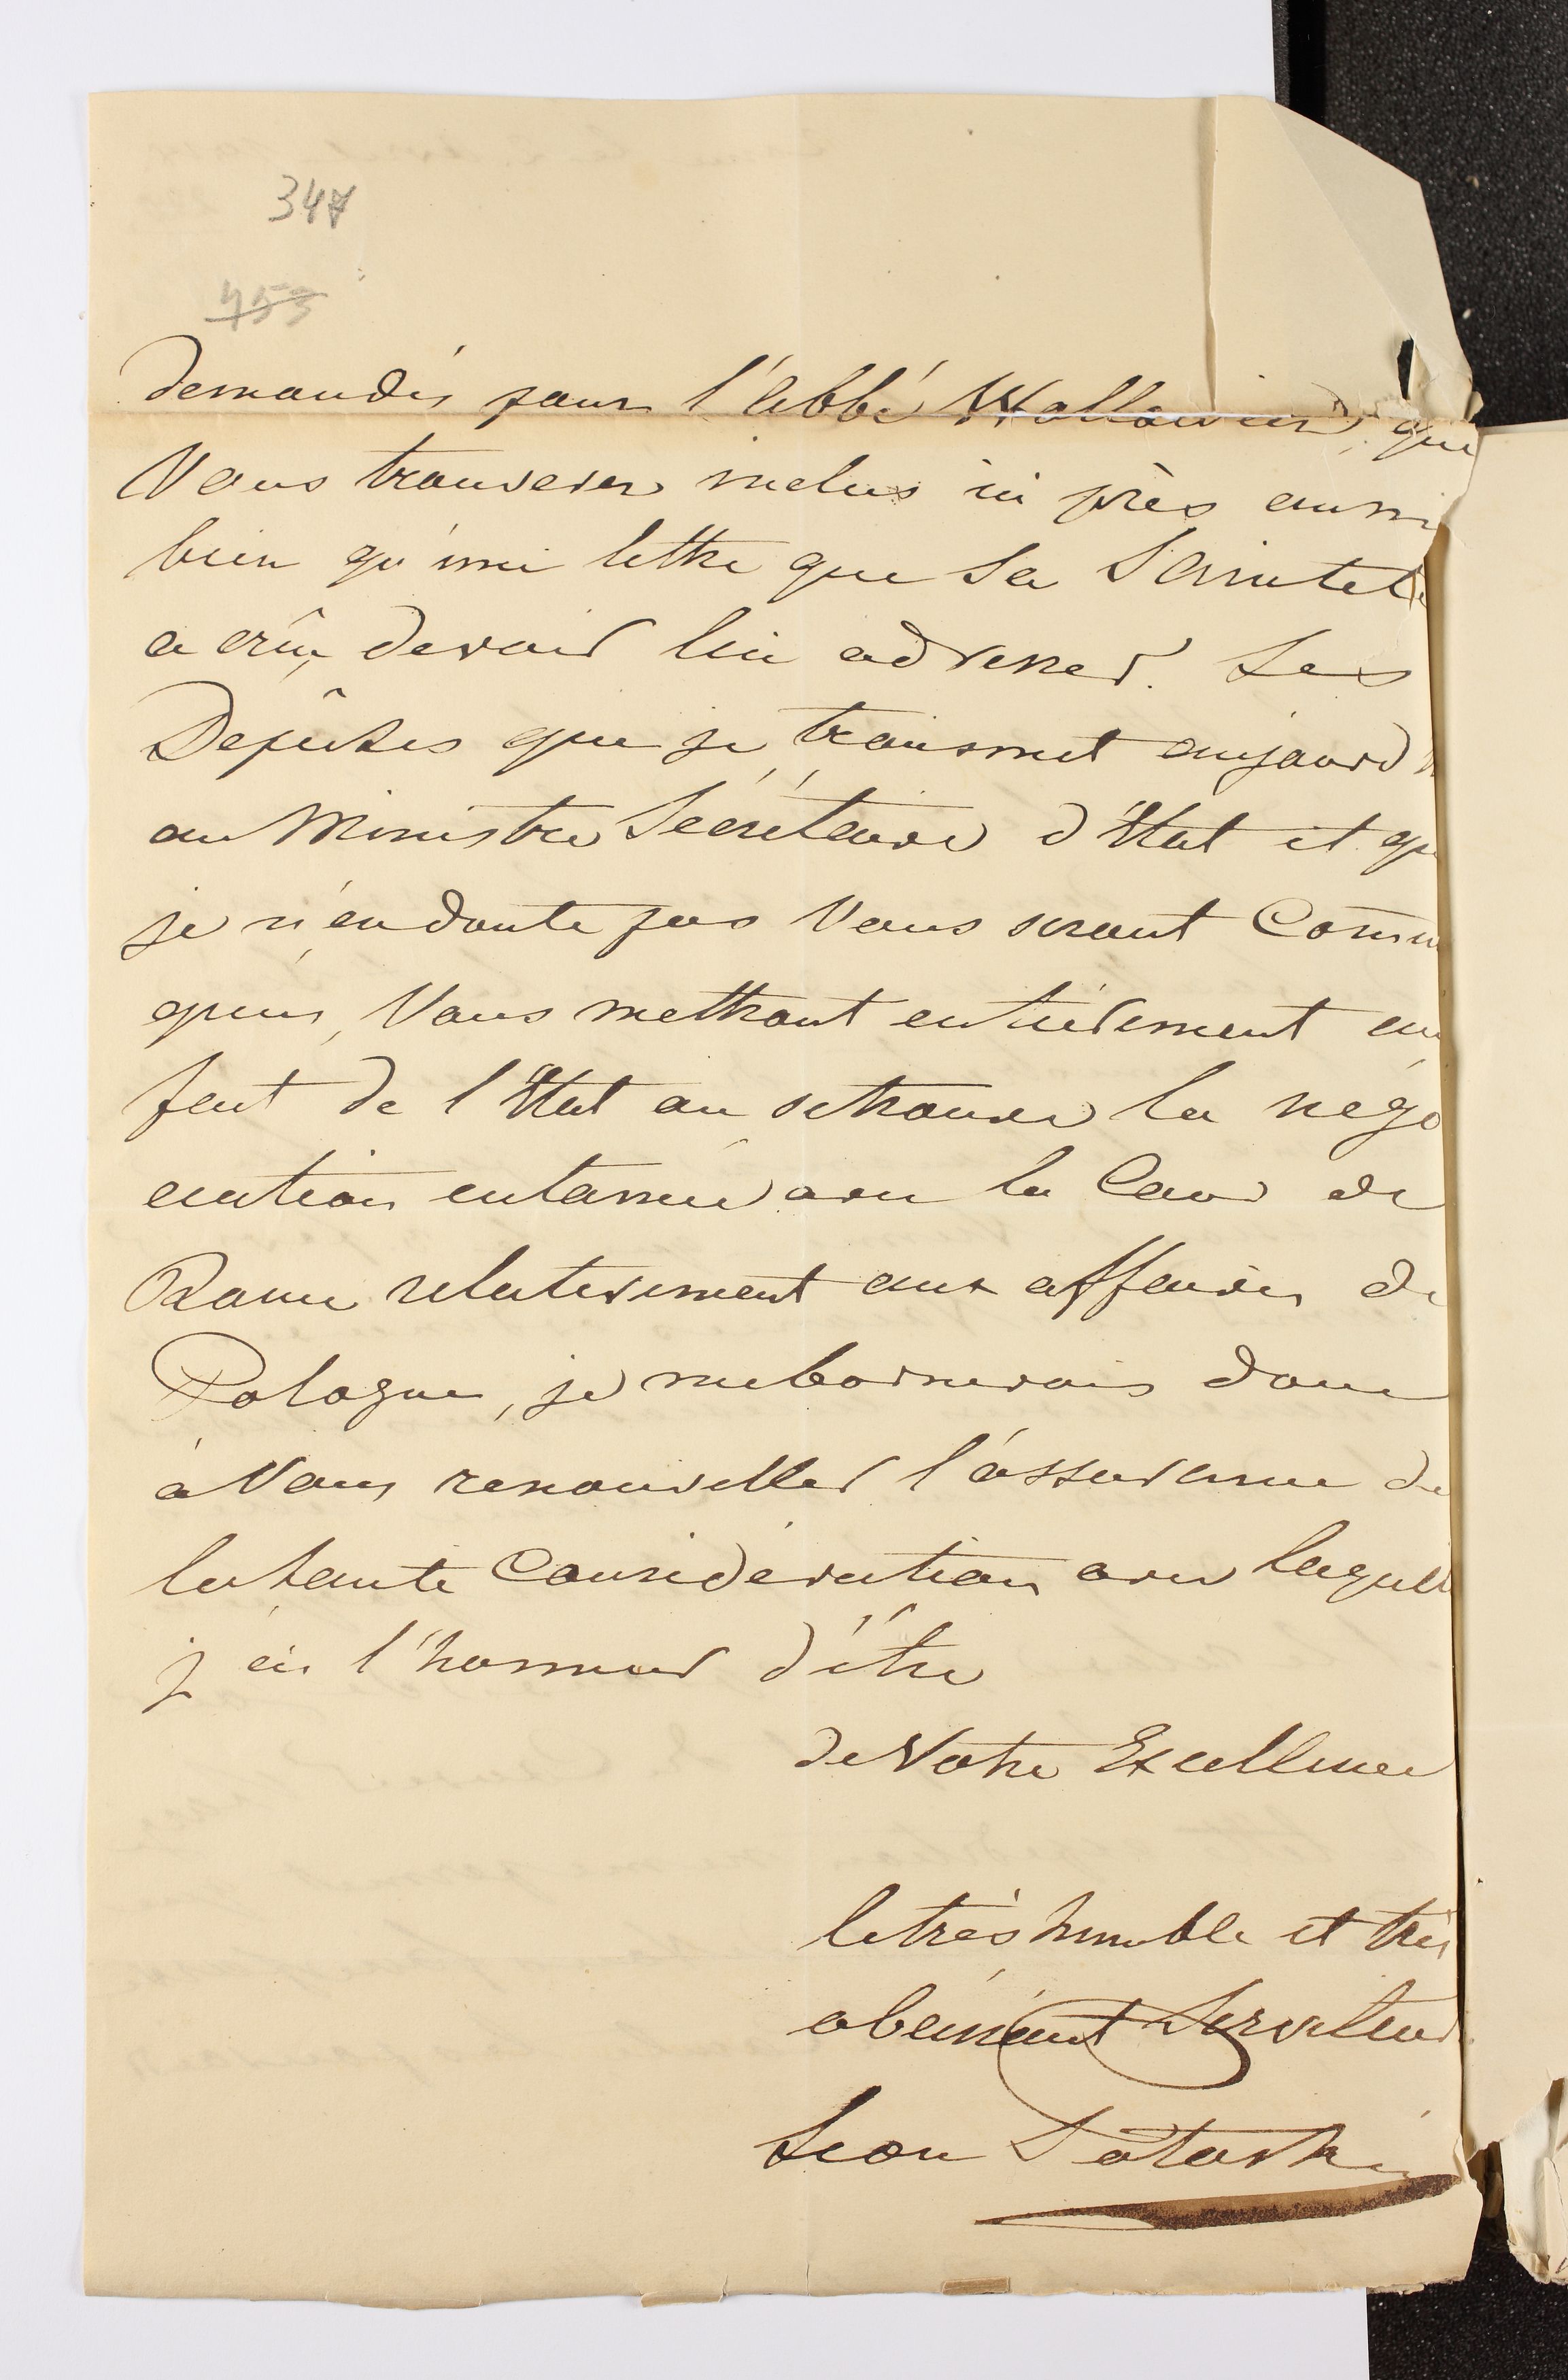 347
753
demandés pour l'abbé Wollowicz, que
Vous trouverez inclus ici près aussi
bien qu'une lettre que Sa Sainteté
a crû, devoir lui adresser. Les
Depêches que je transmet aujourd'h
au Ministre Secrétaire d'Etat et que
je n'en doute pas Vous seront Commu
quées, Vous mettront entièrement au
fait de l'Etat ou se trouve la négo
ciation entamée avec la Cour de
Rome relativement aux affaires de
Pologne, je me bornerais donc
à Vous renouveller l'assurance de
la haute Considération avec laquelle
j'ai l'honneur d'être
de Votre Excellence
le très humble et très
obeissant Serviteur
Leon Potocki